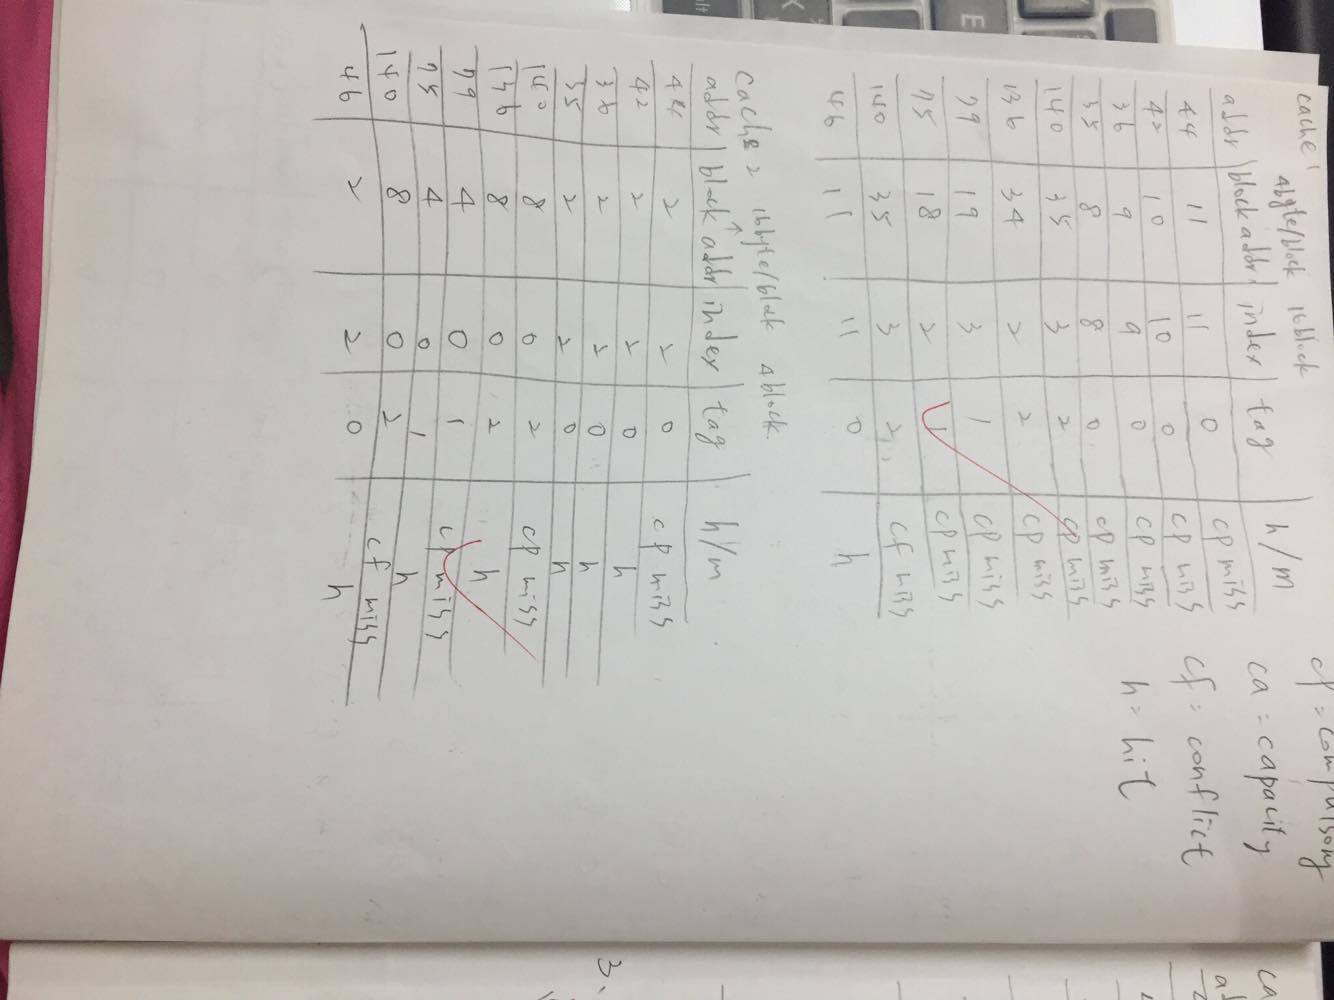 cache 1
4byte/block 16block
addr block addr index tag h/m
44 11 11 0 cp miss
42 10 10 0 cp miss
36 9 9 0 cp miss
35 8 8 0 cp miss
140 35 3 2 cp miss
136 34 2 2 cp miss
79 19 3 1 cp miss
75 18 2 1 cp miss
140 35 3 2 cf miss
46 11 11 0 h
cp = compulsory
ca = capacity
cf = conflict
h = hit
cache 2 16byte/block 4block.
addr block addr index tag h/m
44 2 2 0 cp miss
42 2 2 0 h
36 2 2 0 h
35 2 2 0 h
140 8 0 2 cp miss
136 8 0 2 h
79 4 0 1 cp miss
75 4 0 1 h
140 8 0 2 cf miss
46 2 2 0 h
ca
3.
E
X